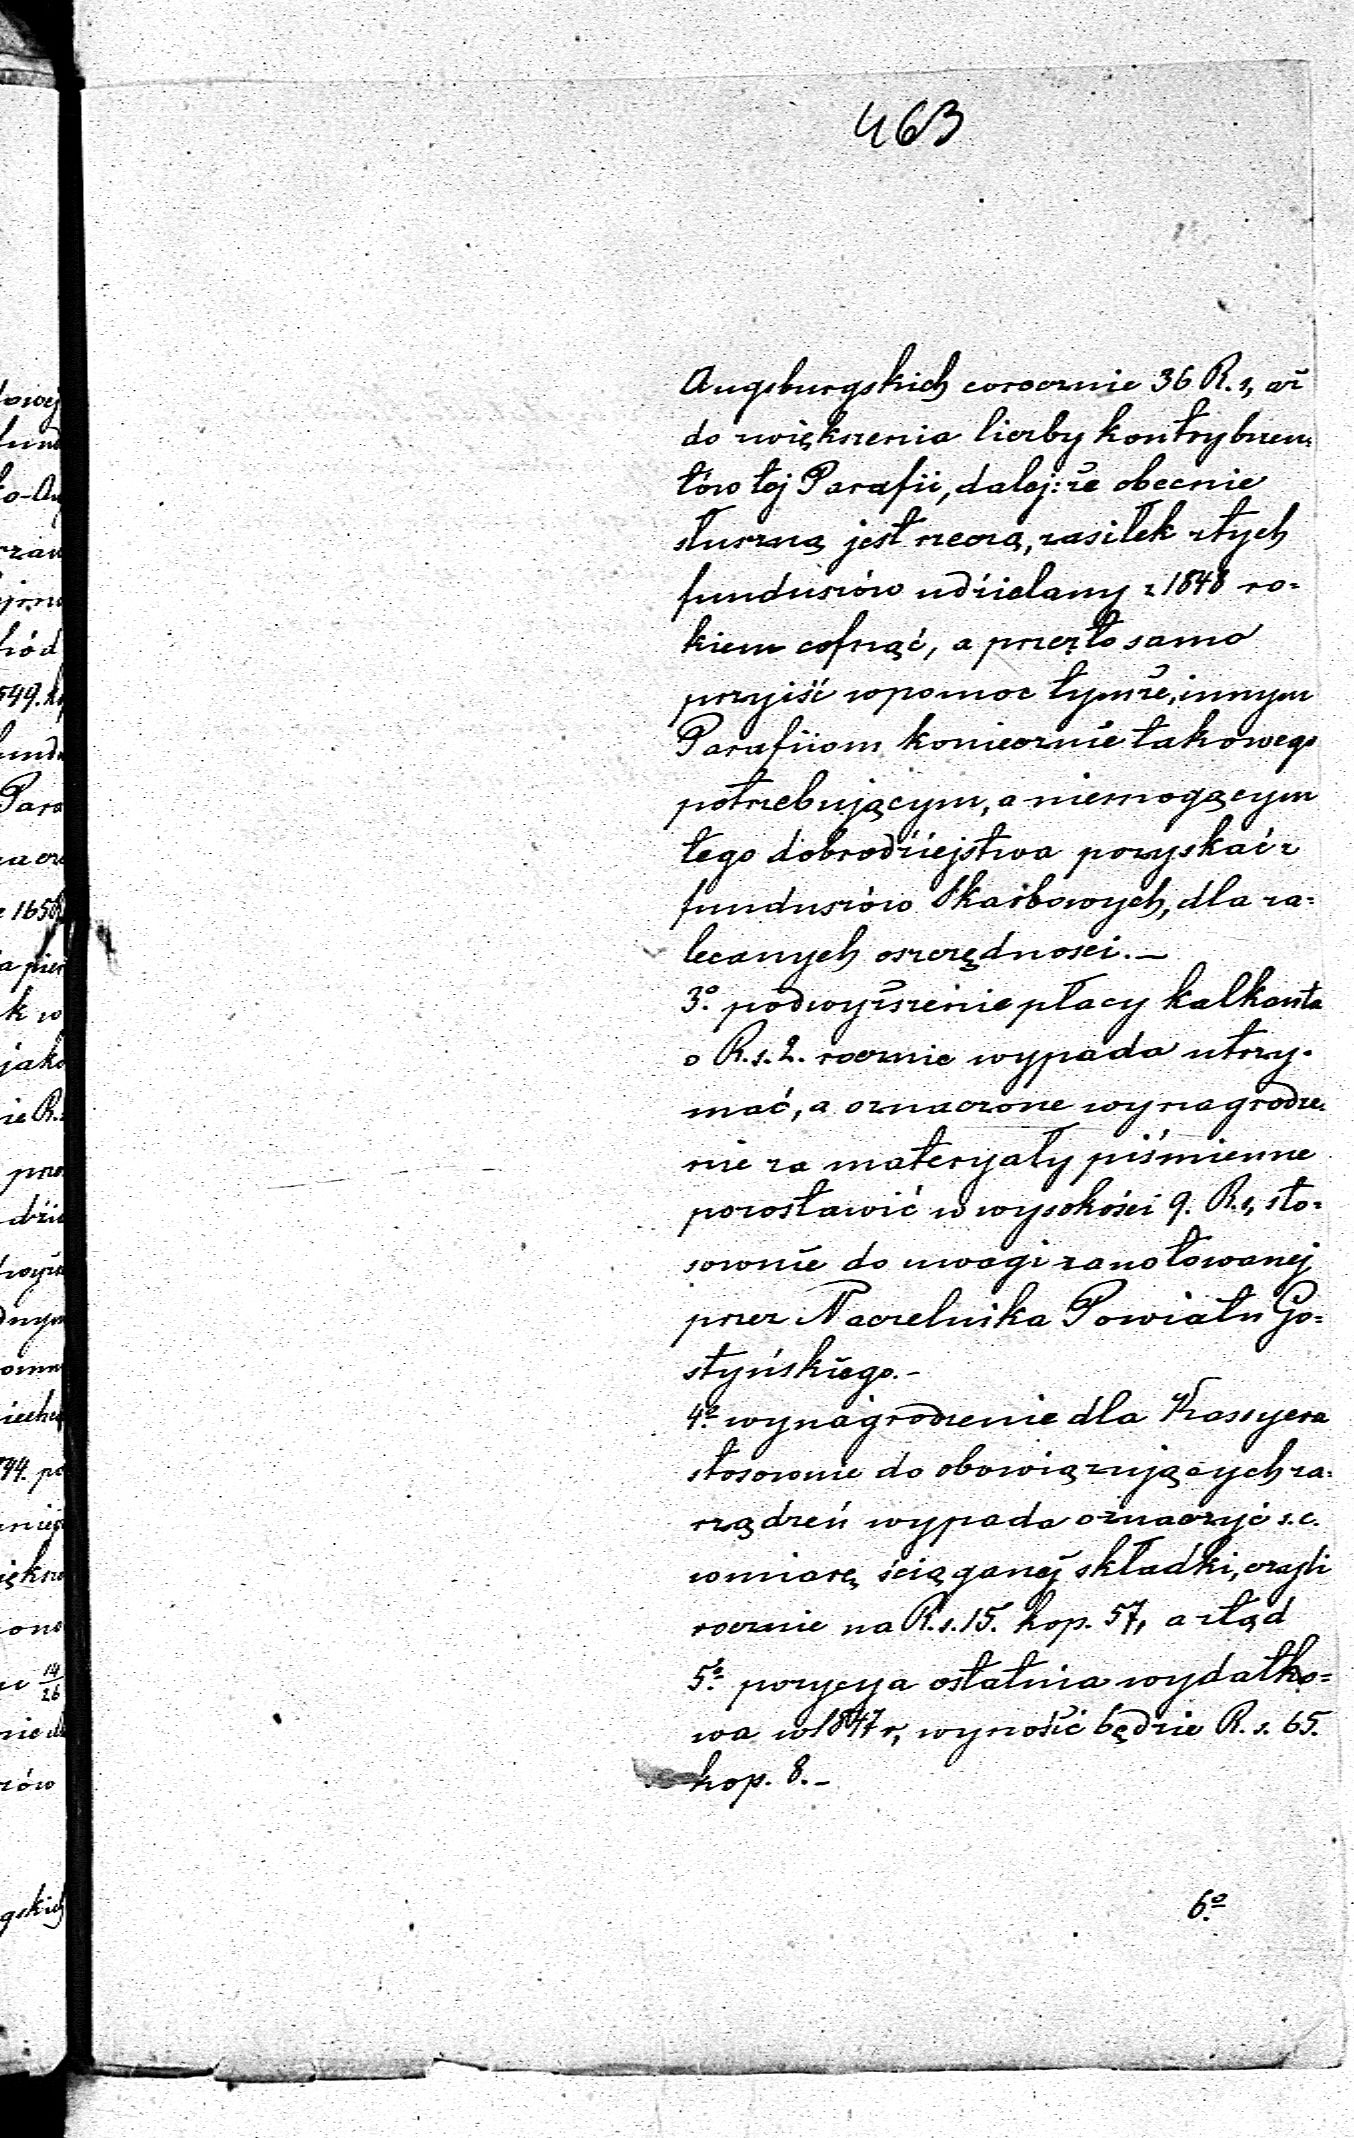 463
Augsburgskich corocznie 36 R. s, aż
do zwiększenia liczby kontrybuen-
tów tej Parafii, dalej: że obecnie
słuszną jest rzeczą, zasiłek z tych
funduszów udzielany z 1848 ro-
kiem cofnąć, a przez to samo
przyjść w pomoc tymże, innym
Parafiiom koniecznie takowego
potrzebującym, a niemogącym
tego dobrodziejstwa pozyskać z
funduszów Skarbowych, dla za-
lecanych oszczędności. —
3º. podwyższenie płacy kalkanta
o R. s. 2. rocznie wypada utrzy-
mać, a oznaczone wynagrodze-
nie za materyały piśmienne
pozostawić w wysokości 9. R. s, sto-
sownie do uwagi zanotowanej
przez Naczelnika Powiatu Go-
styńskiego. -
4º wynagrodzenie dla Kassyera
stosownie do obowiązujących za-
rządzeń wypada oznaczyć s. c.
w miarę ściąganej składki, czyli
rocznie na R. s. 15. kop. 57, a ztąd
5º. pozycya ostatnia wydatko-
wa w 1847 r, wynosić będzie R. s. 65.
kop. 8. -
6º
dowej
fund
to-Au
549. ko
fundu
Para
a pier
k w
jako
nie R.
prze
dzie
594. po
14
26
nie do
zów
gskich